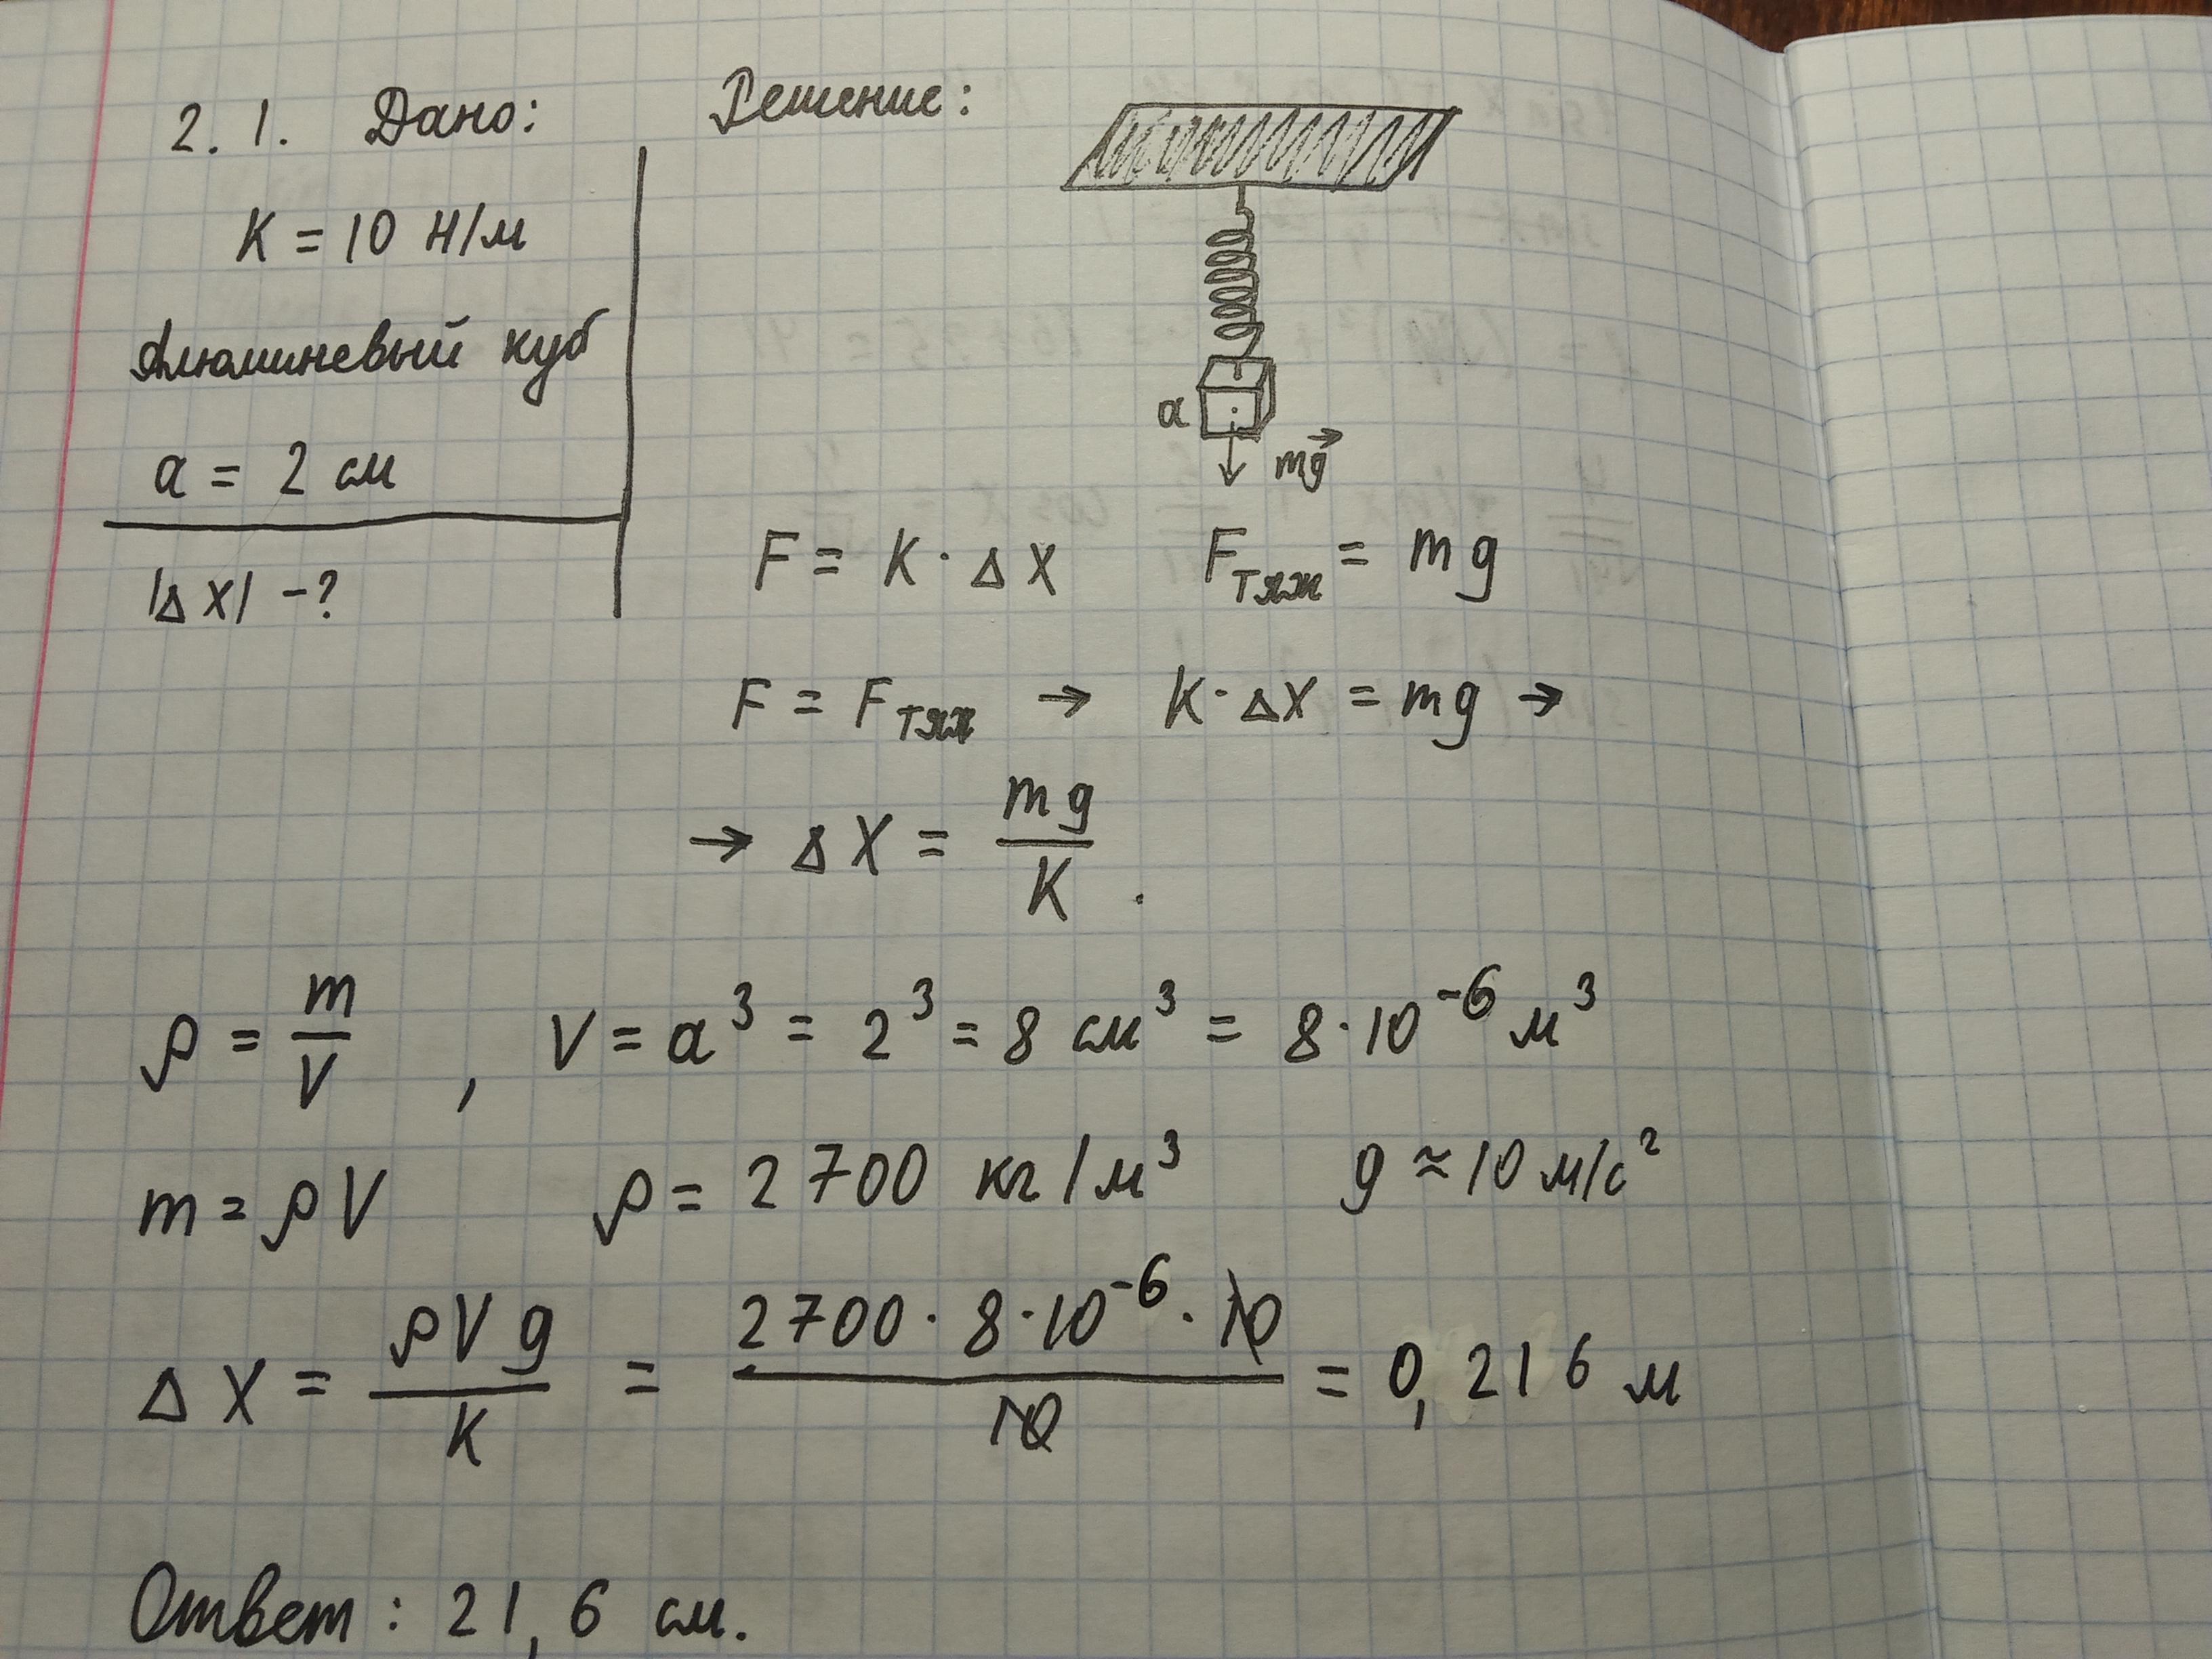 2.1. Дано: Решение:
K = 10 Н/м
Алюминевый куб
a = 2 см
|Δx| -?
a
mg⃗
F = K · Δx F_тяж = mg
F = F_тяж → K · Δx = mg →
→ Δx = mg/K .
ρ = m/V , V = a³ = 2³ = 8 см³ = 8·10⁻⁶ м³
m = ρV ρ = 2700 кг/м³ g ≈ 10 м/с²
Δx = ρVg/K = 2700 · 8·10⁻⁶ · 10/10 = 0,216 м
Ответ: 21,6 см.